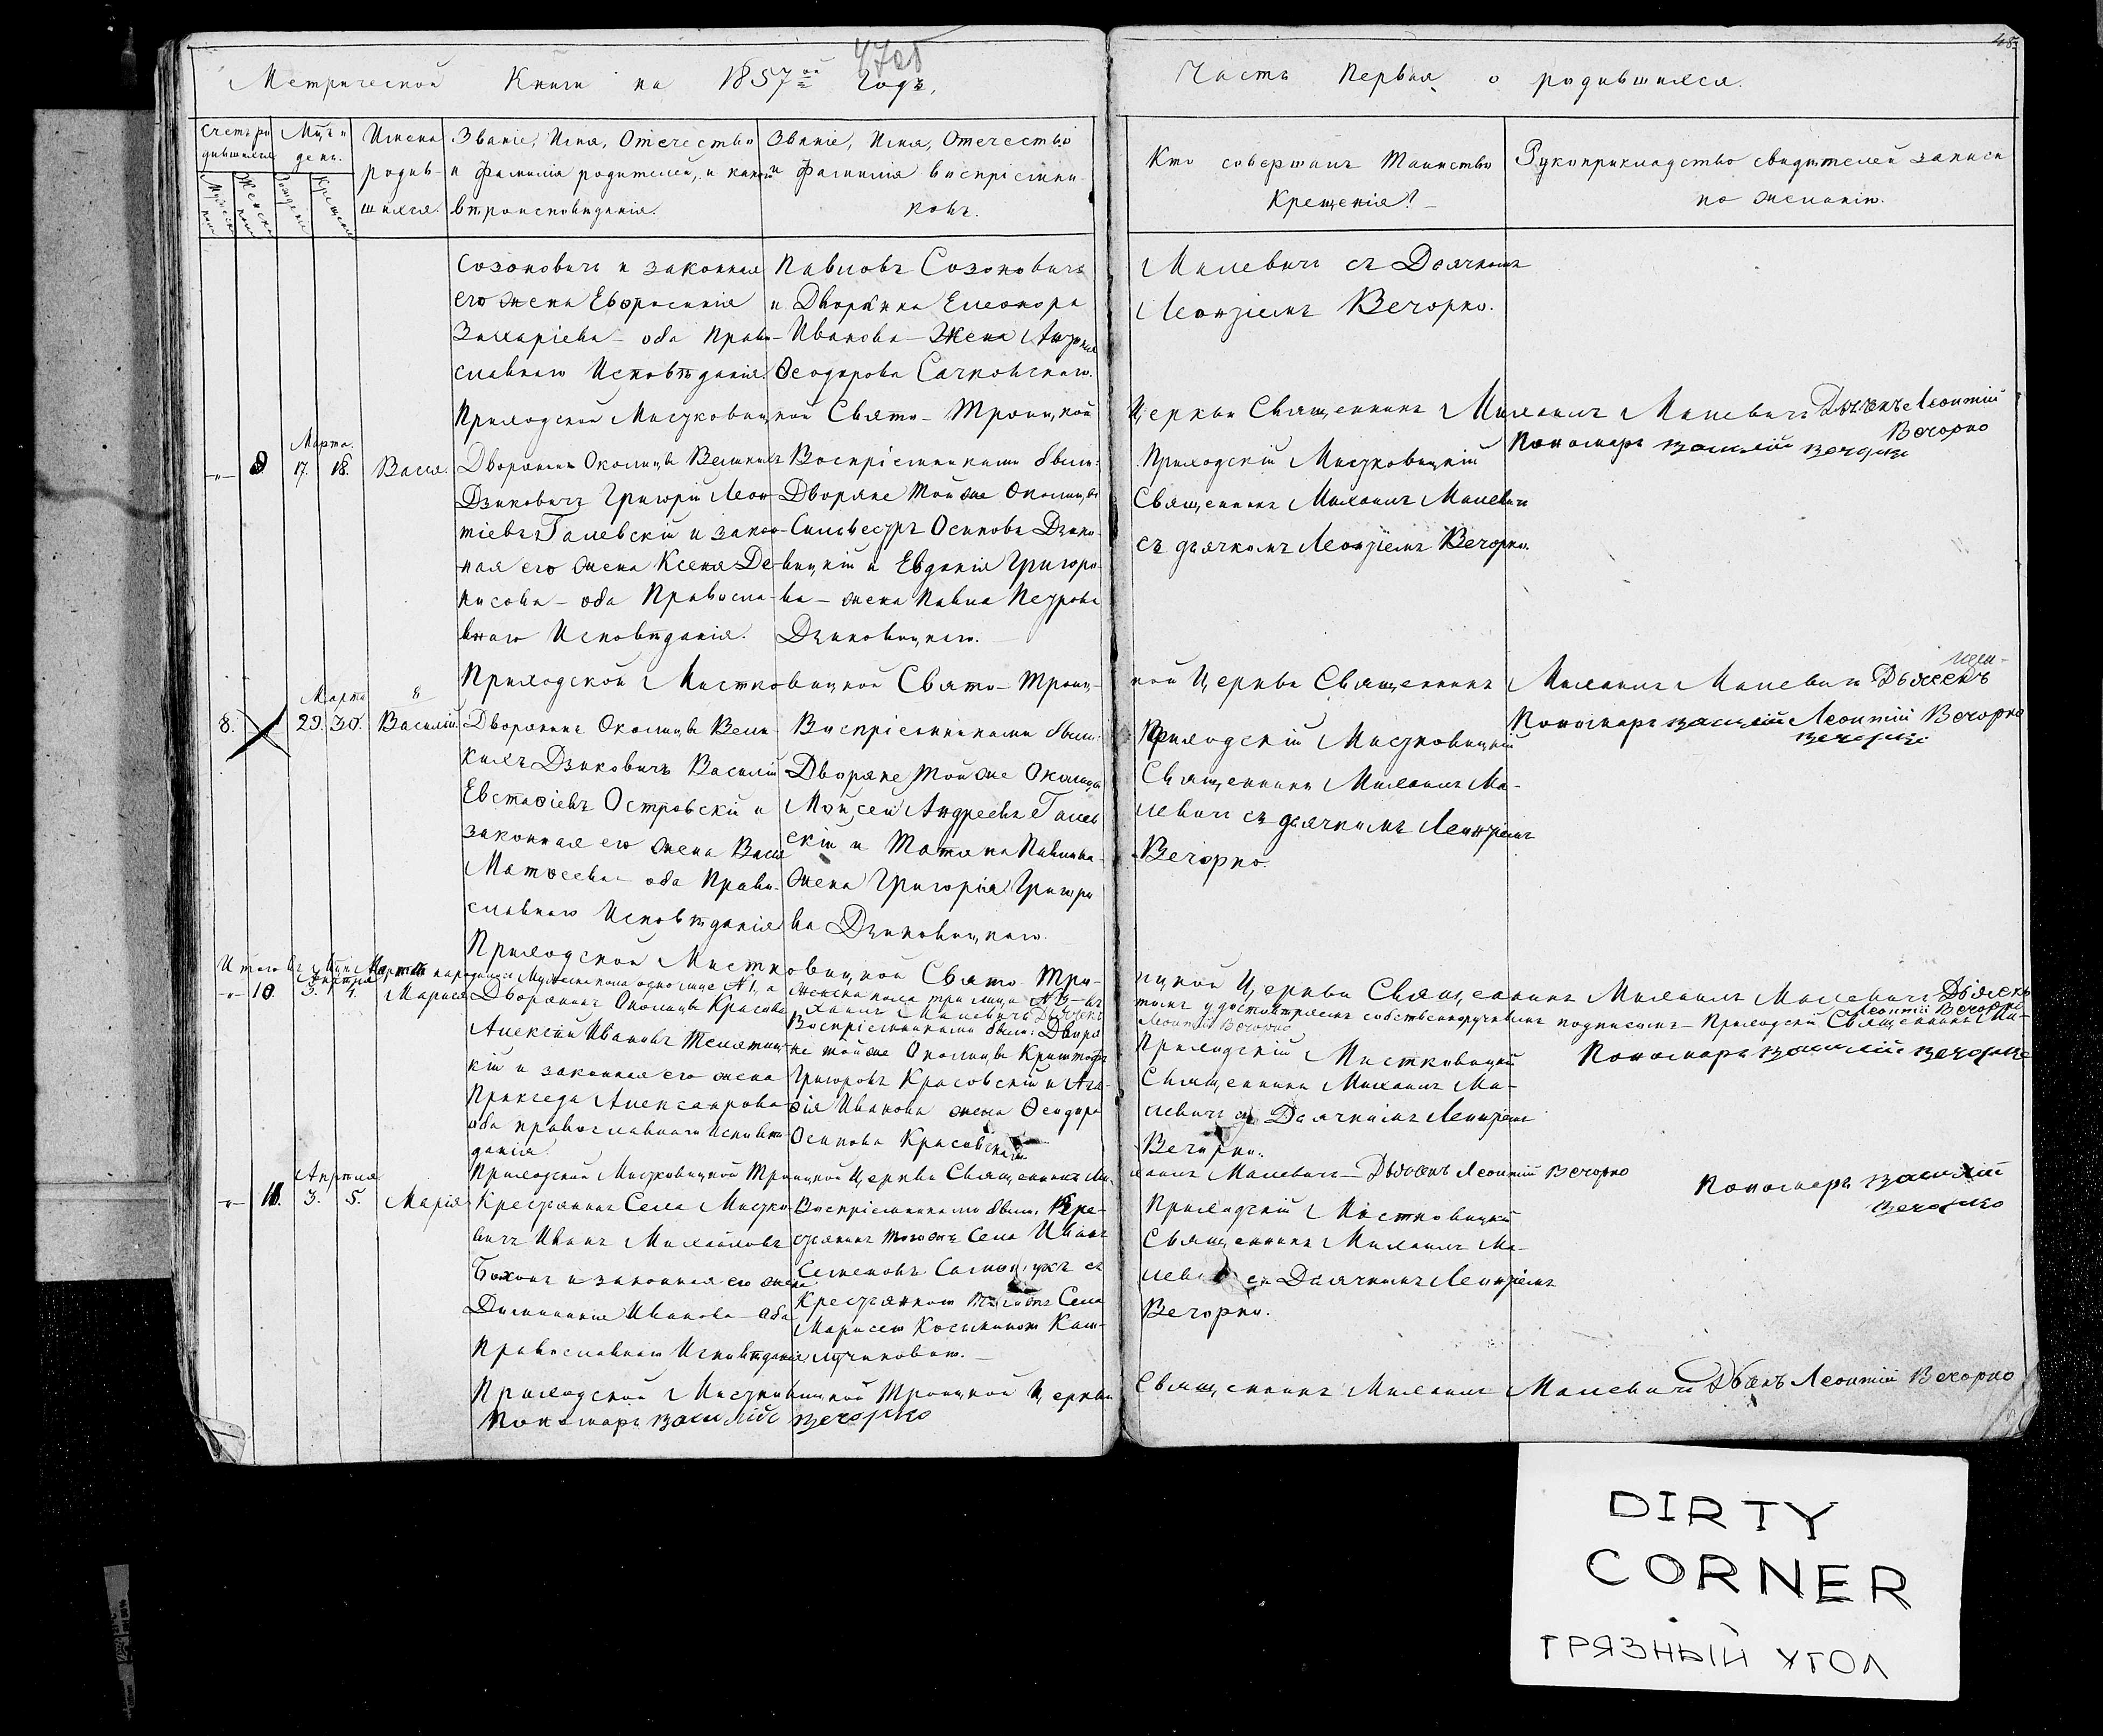 Метрической Книги на 1857ой Годъ,
Часть Первая о родившихся.
Счетъ родившихся
Мцъ и день.
Имена родившихся.
Званіе, Имя, Отечество и Фамилія родителей, и какого вѣроисповѣданія.
Званіе, Имя, Отечество и Фамилія воспріемниковъ.
Кто совершалъ Таинство Крещенія?
Рукоприкладство свидѣтелей записи по желанію.
Созоновичъ и законная
его жена Евфросинія
Захаріева – оба Право-
славнаго Исповѣданія.
Павловъ Созоновичъ
и Дворянка Елеонора
Иванова – Жена
Ѳеодорова Сачковскаго.
Малевичъ съ Дьячкомъ
Леонтіемъ Вечорко.
Приходской Мистковицкой Свято-Троицкой Церкви Священникъ Михаилъ Малевичъ Дьячекъ Леонтій Вечорко
Пономарь Василій Вечорко
9 Марта 17. 18. Васса.
Дворянинъ Околицы Великихъ
Дзиковичъ Григорій Леон-
тіевъ Галевскій и закон-
ная его жена Ксенія Де-
нисова – оба Правосла-
внаго Исповѣданія.
Воспріемниками были:
Дворяне той же Околицы
Сильвестръ Осиповъ Дзико-
вицкій и Евдокія Григорь-
ва – жена Павла Петрова
Дзиковицкаго.
Приходскій Мистковицкій
Священникъ Михаилъ Малевичъ
съ дьячкомъ Леонтіемъ Вечорко.
Приходской Мистковицкой Свято-Троиц-
кой Церкви Священникъ Михаилъ Малевичъ Дьячекъ
Леонтій Вечорко
Пономарь Василій Вечорко
8. Марта 29. 30. Василій
Дворянинъ Околицы Вели-
кихъ Дзиковичъ Василій
Евстафіевъ Островскій и
законная его жена Васса
Матѳеева – оба Право-
славнаго Исповѣданія
Воспріемниками были:
Дворяне той же Околицы
Мойсей Андреевъ Галев
скій и Татяна Павлова
жена Григорія Григорь
ва Дзиковицкаго.
Приходскій Мистковицкій
Священникъ Михаилъ Ма-
левичъ съ дьячкомъ Леонтіемъ
Вечорко.
Приходской Мистковицкой Свято Тро-
ицкой Церкви Священникъ Михаилъ Малевичъ Дьячекъ
Леонтій Вечорко
собственоручнымъ подписомъ – Приходскій Священникъ Ми-
хаилъ Малевичъ Дьячекъ
Леонтій Вечорко
Пономарь Василій Вечорко
10. Апрѣля 3. 4. Марія
Дворянинъ Околицы Красова
Алексѣй Ивановъ
и законная его жена
Александрова
оба православнаго исповѣ-
данія
Воспріемниками были: Дворя
не той же Околицы
Григоровъ Красовскій и Ага-
фія Иванова жена Ѳеодора
Осипова Красовскаго
Приходскій Мистковицкій
Священникъ Михаилъ Ма-
левичъ съ Дьячкомъ Леонтіемъ
Вечорко.
Приходской Мистковицкой Троицкой Церкви Священникъ Ми-
хаилъ Малевичъ – Дьячекъ Леонтій Вечорко
Пономарь Василій
Вечорко
11. Апрѣля 3. 5. Марія
Крестьянинъ Села Мистко-
вичъ Иванъ Михайловъ
и законная его жена
Иванова – оба
Православнаго Исповѣданія
Воспріемниками были: Кре-
стьянинъ тогожъ Села Иванъ
Семеновъ
Крестьянкою Села
Приходскій Мистковицкій
Священникъ Михаилъ Ма-
съ Дьячкомъ Леонтіемъ
Вечорко.
Приходской Мистковицкой Троицкой Церкви Священникъ Михаилъ Малевичъ Дьячекъ Леонтій Вечорко
Пономарь Василій Вечорко
DIRTY
CORNER
ГРЯЗНЫЙ УГОЛ